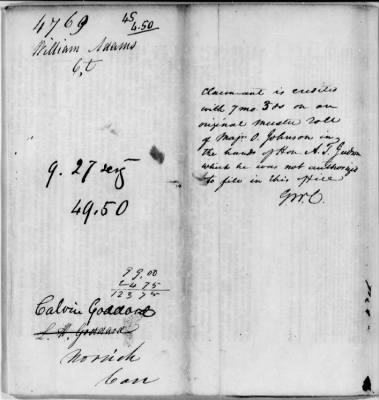 4769
45
4.50
William Adams
Ct
9. 27 serg
49.50
99.00
24.75
123 75
Calvin Goddard
L. H. Goddard
Norwich
Con
Claimant is credited
with 7 mo 3 ds on an
original muster roll
of Majr. O. Johnson in
the hands of Hon A. T. Judson
which he was not authorized
to file in this office
GWC.